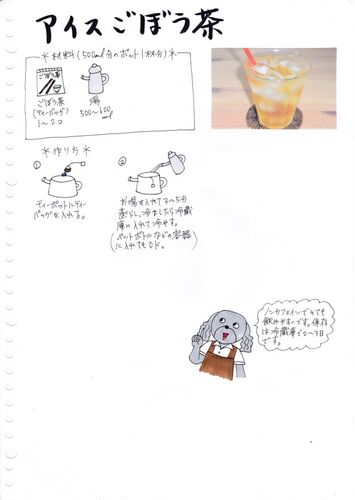 アイスごぼう茶
*材料(500ml分のポット1杯分)*
ごぼう茶
ごぼう茶
(ティーバッグ)
1〜2コ
湯
500〜600
ml
*作り方*
①
ティーポットにティー
バッグを入れる。
②
お湯を入れて3〜5分
蒸らし、冷ましたら冷蔵
庫に入れて冷やす。
(ペットボトルなどの容器
に入れてもOK。)
ノンカフェインでとても
飲みやすいです。保存
は冷蔵庫で2〜3日
です。